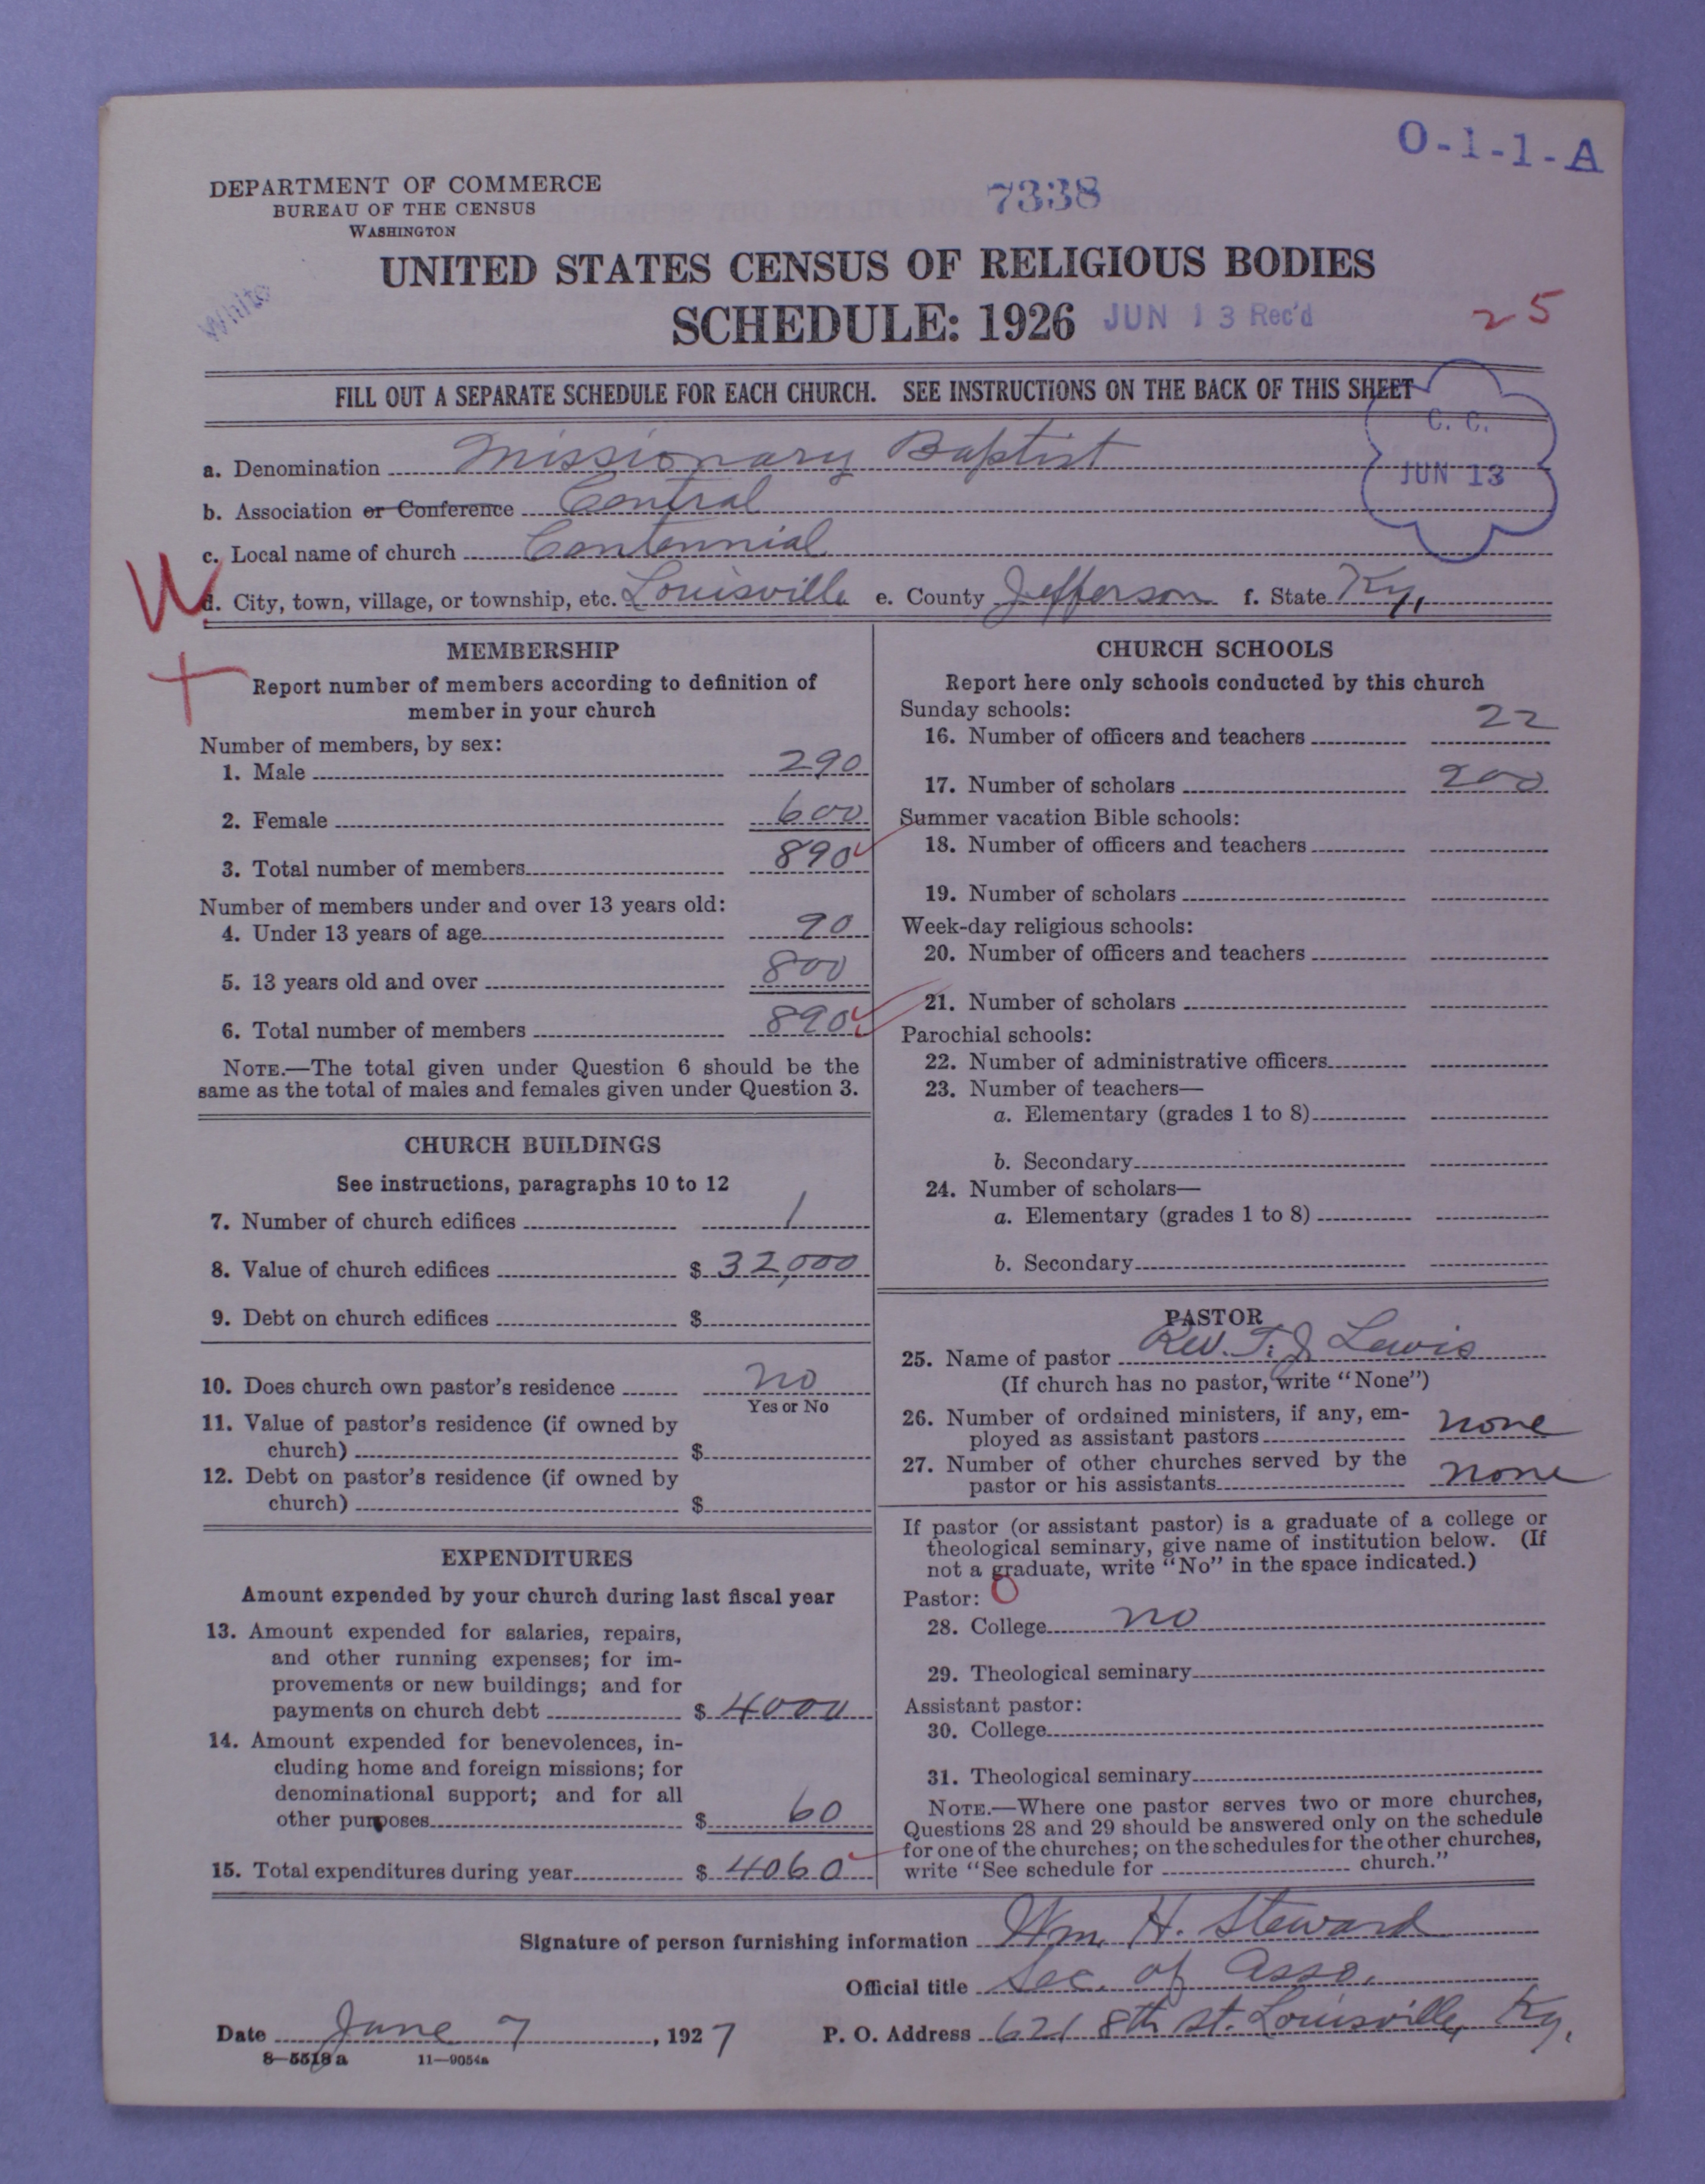 O-1-1-A
DEPARTMENT OF COMMERCE
BUREAU OF THE CENSUS
WASHINGTON
7338
UNITED STATES CENSUS OF RELIGIOUS BODIES
White
SCHEDULE: 1926 JUN 13 Rec'd 25
FILL OUT A SEPARATE SCHEDULE FOR EACH CHURCH. SEE INSTRUCTIONS ON THE BACK OF THIS SHEET
C. C.
JUN 13
a. Denomination Missionary Baptist
b. Association or Conference Central
c. Local name of church Centennial
W
d. City, town, village, or township, etc. Louisville e. County Jefferson f. State Ky,
MEMBERSHIP
Report number of members according to definition of
member in your church
Number of members, by sex:
1. Male 290
2. Female 600
3. Total number of members 890
Number of members under and over 13 years old:
4. Under 13 years of age 90
5. 13 years old and over 800
6. Total number of members 890
NOTE.—The total given under Question 6 should be the
same as the total of males and females given under Question 3.
CHURCH BUILDINGS
See instructions, paragraphs 10 to 12
7. Number of church edifices 1
8. Value of church edifices $ 32,000
9. Debt on church edifices $
10. Does church own pastor's residence no
Yes or No
11. Value of pastor's residence (if owned by
church) $
12. Debt on pastor's residence (if owned by
church) $
EXPENDITURES
Amount expended by your church during last fiscal year
13. Amount expended for salaries, repairs,
and other running expenses; for im-
provements or new buildings; and for
payments on church debt $ 4000
14. Amount expended for benevolences, in-
cluding home and foreign missions; for
denominational support; and for all
other purposes $ 60
15. Total expenditures during year $ 4060
CHURCH SCHOOLS
Report here only schools conducted by this church
Sunday schools:
16. Number of officers and teachers 22
17. Number of scholars 200
Summer vacation Bible schools:
18. Number of officers and teachers
19. Number of scholars
Week-day religious schools:
20. Number of officers and teachers
21. Number of scholars
Parochial schools:
22. Number of administrative officers
23. Number of teachers—
a. Elementary (grades 1 to 8)
b. Secondary
24. Number of scholars—
a. Elementary (grades 1 to 8)
b. Secondary
PASTOR
25. Name of pastor Rev. T. J. Lewis
(If church has no pastor, write "None")
26. Number of ordained ministers, if any, em-
ployed as assistant pastors none
27. Number of other churches served by the
pastor or his assistants none
If pastor (or assistant pastor) is a graduate of a college or
theological seminary, give name of institution below. (If
not a graduate, write "No" in the space indicated.)
Pastor: 0
28. College no
29. Theological seminary
Assistant pastor:
30. College
31. Theological seminary
NOTE.—Where one pastor serves two or more churches,
Questions 28 and 29 should be answered only on the schedule
for one of the churches; on the schedules for the other churches,
write "See schedule for church."
Signature of person furnishing information Wm. H. Steward
Official title Sec. of Asso.
Date June 7, 1927 P. O. Address 621 8th st. Louisville, Ky.
8—5518a 11—9054a